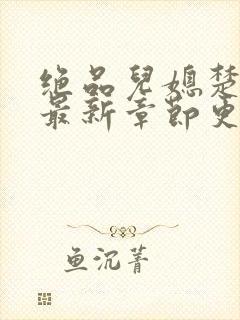 绝品儿媳楚
最新章节更
鱼沉菁